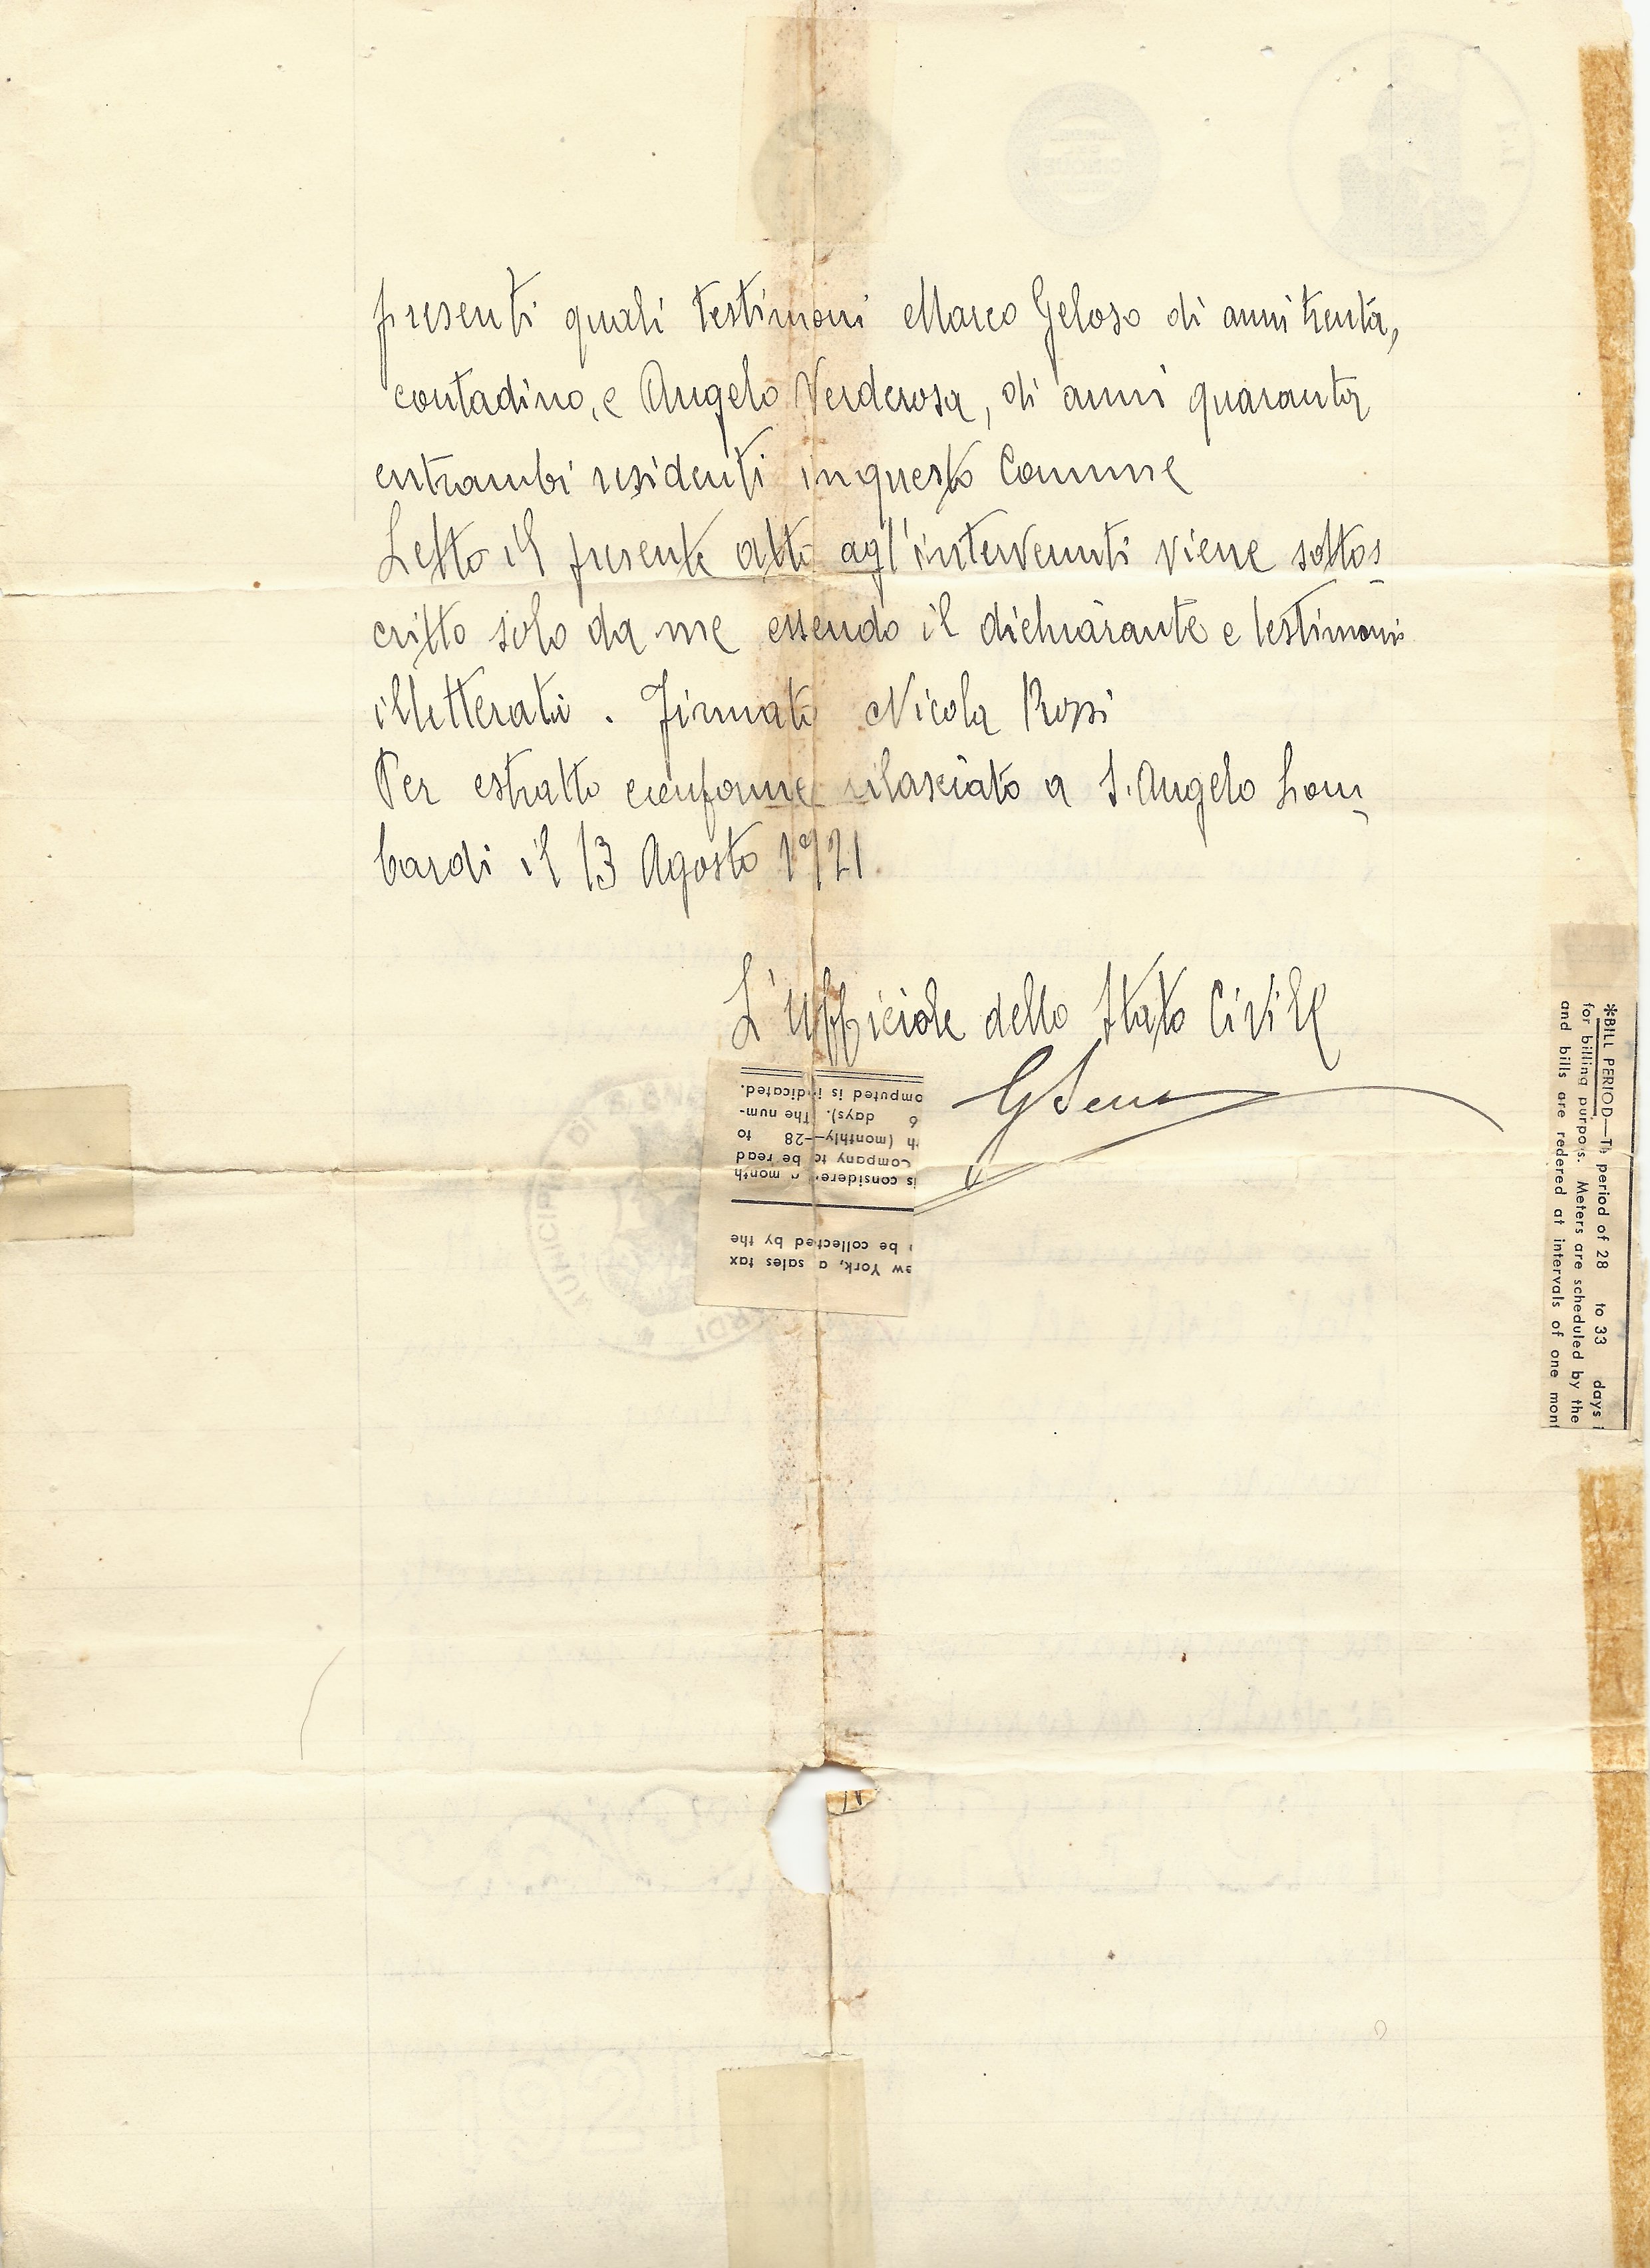 presenti quali testimoni Marco Geloso di anni trenta,
contadino, e Angelo Verderosa, di anni quaranta
entrambi residenti in questo Comune
Letto il presente atto agl'intervenuti viene sottos
critto solo da me essendo il dichiarante e testimoni
illetterati. Firmato Nicola Rossi
Per estratto conforme rilasciato a S. Angelo Lom
bardi il 13 Agosto 1921.
L'Ufficiale dello Stato Civile
MUNICIPIO DI S. ANG
RDI
ew York, a sales tax
be collected by the
is considere month
Company to be read
h (monthly—28 to
6 days). The num-
omputed is indicated.
*BILL PERIOD—Th period of 28 to 33 days i
for billing purpos. Meters are scheduled by the
and bills are redered at intervals of one mont